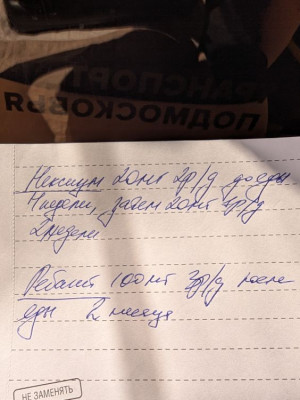 ТРАНСПОРТ
ПОДМОСКОВЬЯ
Нексиум 20мг 2р/д до еды
4 недели, затем 20мг 1р/д
2 недели
Ребагит 100мг 3р/д после
еды 2 месяца
НЕ ЗАМЕНЯТЬ